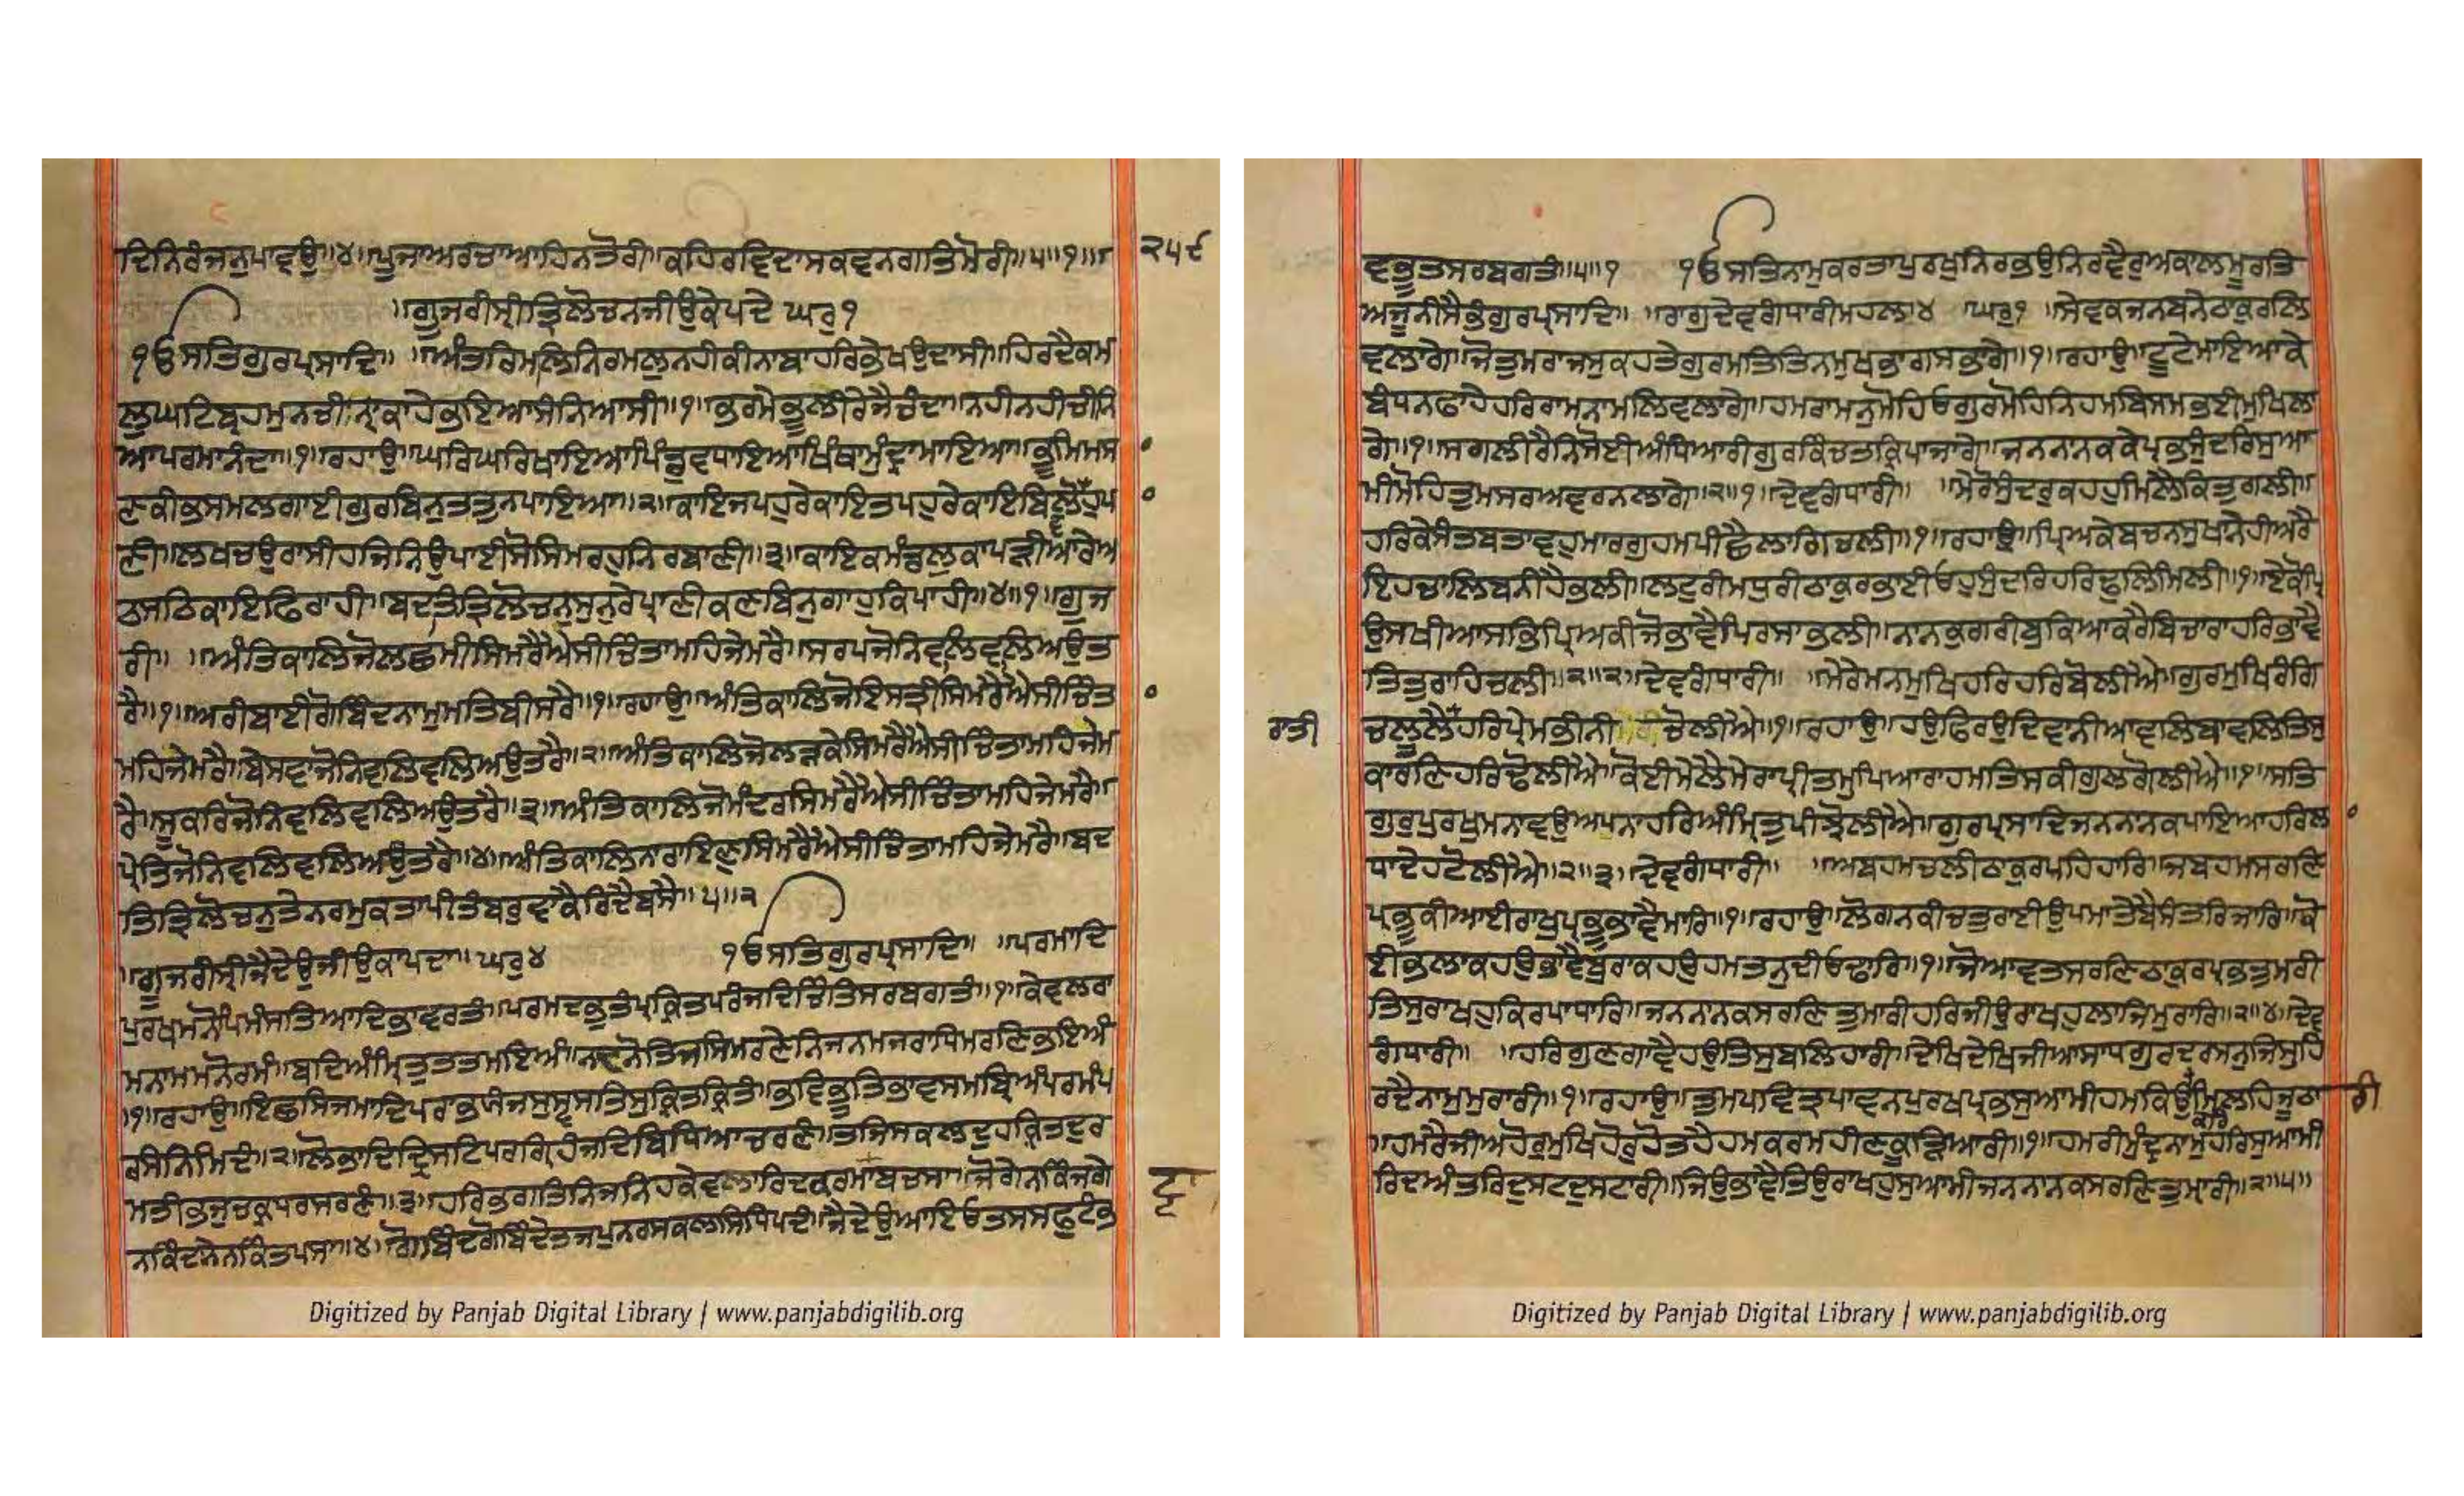 ਦਿਨਿਰੰਜਨੁਪਾਵਉ॥੪॥ਪੂਜਾਅਰਚਾਆਹਿਨਤੋਰੀ॥ਕਹਿਰਵਿਦਾਸਕਵਨਗਤਿਮੋਰੀ॥੫॥੧॥
੨੫੯
॥ਗੂਜਰੀਸ੍ਰੀਤ੍ਰਿਲੋਚਨਜੀਉਕੇਪਦੇ ਘਰੁ੧
ੴਸਤਿਗੁਰਪ੍ਰਸਾਦਿ॥ ॥ਅੰਤਰਿਮਲਿਨਿਰਮਲੁਨਹੀਕੀਨਾਬਾਹਰਿਭੇਖਉਦਾਸੀ॥ਹਿਰਦੈਕਮ
ਲੁਘਟਿਬ੍ਰਹਮੁਨਚੀਨ੍ਹਾਕਾਹੇਭਇਆਸੰਨਿਆਸੀ॥੧॥ਭਰਮੇਭੂਲੀਰੇਜੈਚੰਦਾ॥ਨਹੀਨਹੀਚੀਨਿ
ਆਪਰਮਾਨੰਦਾ॥੧॥ਰਹਾਉ॥ਘਰਿਘਰਿਖਾਇਆਪਿੰਡੁਵਧਾਇਆਖਿੰਥਾਮੁੰਦ੍ਰਾਮਾਇਆ॥ਭੂਮਿਮਸਾ
ਣਕੀਭਸਮਲਗਾਈਗੁਰਬਿਨੁਤਤੁਨਪਾਇਆ॥੨॥ਕਾਇਜਪਹੁਰੇਕਾਇਤਪਹੁਰੇਕਾਇਬਿਲੋਵਹੁਪਾ
ਣੀ॥ਲਖਚਉਰਾਸੀਹਜਿਨਿਉਪਾਈਸੋਸਿਮਰਹੁਨਿਰਬਾਣੀ॥੩॥ਕਾਇਕਮੰਡਲੁਕਾਪੜੀਆਰੇਅ
ਠਸਠਿਕਾਇਫਿਰਾਹੀ॥ਬਦਤਿਤ੍ਰਿਲੋਚਨੁਸੁਨੁਰੇਪ੍ਰਾਣੀਕਣਬਿਨੁਗਾਹੁਕਿਪਾਹੀ॥੪॥੧॥ਗੂਜ
ਰੀ॥ ॥ਅੰਤਿਕਾਲਿਜੋਲਛਮੀਸਿਮਰੈਐਸੀਚਿੰਤਾਮਹਿਜੇਮਰੈ॥ਸਰਪਜੋਨਿਵਲਿਵਲਿਅਉਤ
ਰੈ॥੧॥ਅਰੀਬਾਈਗੋਬਿੰਦਨਾਮੁਮਤਿਬੀਸਰੈ॥੧॥ਰਹਾਉ॥ਅੰਤਿਕਾਲਿਜੋਇਸਤ੍ਰੀਸਿਮਰੈਐਸੀਚਿੰਤਾ
ਮਹਿਜੇਮਰੈ॥ਬੇਸਵਾਜੋਨਿਵਲਿਵਲਿਅਉਤਰੈ॥੨॥ਅੰਤਿਕਾਲਿਜੋਲੜਕੇਸਿਮਰੈਐਸੀਚਿੰਤਾਮਹਿਜੇਮ
ਰੈ॥ਸੂਕਰਿਜੋਨਿਵਲਿਵਲਿਅਉਤਰੈ॥੩॥ਅੰਤਿਕਾਲਿਜੋਮੰਦਰਸਿਮਰੈਐਸੀਚਿੰਤਾਮਹਿਜੇਮਰੈ॥
ਪ੍ਰੇਤਿਜੋਨਿਵਲਿਵਲਿਅਉਤਰੈ॥੪॥ਅੰਤਿਕਾਲਿਨਾਰਾਇਣੁਸਿਮਰੈਐਸੀਚਿੰਤਾਮਹਿਜੇਮਰੈ॥ਬਦ
ਤਿਤ੍ਰਿਲੋਚਨੁਤੇਨਰਮੁਕਤਾਪੀਤੰਬਰੁਵਾਕੈਰਿਦੈਬਸੈ॥੫॥੨
॥ਗੂਜਰੀਸ੍ਰੀਜੈਦੇਉਜੀਉਕਾਪਦਾ॥ਘਰੁ੪ ੴਸਤਿਗੁਰਪ੍ਰਸਾਦਿ॥ ॥ਪਰਮਾਦਿ
ਪੁਰਖਮਨੋਪਿਮੰਸਤਿਆਦਿਭਾਵਰਤੰ॥ਪਰਮਦਭੁਤੰਪ੍ਰਕ੍ਰਿਤਪਰੰਜਦਿਚਿੰਤਿਸਰਬਗਤੰ॥੧॥ਕੇਵਲਰਾ
ਮਨਾਮਮਨੋਰਮੰ॥ਬਦਿਅੰਮ੍ਰਿਤੁਤਤਮਇਅੰ॥ਨਦਨੋਤਿਜਸਿਮਰਣੇਨਿਜਨਮਜਰਾਧਿਮਰਣਿਭਇਅੰ
॥੧॥ਰਹਾਉ॥ਇਛਸਿਜਮਾਦਿਪਰਾਭਯੰਜਸੁਸ੍ਵਸਤਿਸੁਕ੍ਰਿਤਕ੍ਰਿਤੰ॥ਭਵਿਭੂਤਿਭਾਵਸਮਬ੍ਯਿਅੰਪਰਮੰਪ
ਰਸੰਨਿਮਿਦੰ॥੨॥ਲੋਭਾਦਿਦ੍ਰਿਸਟਿਪਰਗ੍ਰਿਹੰਜਦਿਬਿਧਿਆਚਰਣੰ॥ਤਜਿਸਕਲਦੁਹਕ੍ਰਿਤਦੁਰ
ਮਤੀਭਜੁਚਕ੍ਰਧਰਸਰਣੰ॥੩॥ਹਰਿਭਗਤਿਨਿਜਨਿਹਕੇਵਲਾਰਿਦਕਰਮਾਬਚਸਾ॥ਜੋਗੇਨਕਿੰਜਗੇ
ਨਕਿੰਦਾਨੇਨਕਿੰਤਪਸਾ॥੪॥ਗੋਬਿੰਦਗੋਬਿੰਦੇਤਿਜਪੁਨਰਸਕਲਸਿਧਿਪਦੰ॥ਜੈਦੇਉਆਇਓਤਸਸਫੁਟੰਭ
Digitized by Panjab Digital Library | www.panjabdigilib.org
ਵਭੂਤਸਰਬਗਤੰ॥੫॥੧ ੴਸਤਿਨਾਮੁਕਰਤਾਪੁਰਖੁਨਿਰਭਉਨਿਰਵੈਰੁਅਕਾਲਮੂਰਤਿ
ਅਜੂਨੀਸੈਭੰਗੁਰਪ੍ਰਸਾਦਿ॥ ॥ਰਾਗੁਦੇਵਗੰਧਾਰੀਮਹਲਾ੪ ॥ਘਰੁ੧ ॥ਸੇਵਕਜਨਬਨੇਠਾਕੁਰਲਿ
ਵਲਾਗੇ॥ਜੋਤੁਮਰਾਜਸੁਕਹਤੇਗੁਰਮਤਿਤਿਨਮੁਖਭਾਗਸਭਾਗੇ॥੧॥ਰਹਾਉ॥ਟੂਟੇਮਾਇਆਕੇ
ਬੰਧਨਫਾਹੇਹਰਿਰਾਮਨਾਮਲਿਵਲਾਗੇ॥ਹਮਰਾਮਨੁਮੋਹਿਓਗੁਰਮੋਹਨਿਹਮਬਿਸਮਭਈਮੁਖਿਲਾ
ਗੇ॥੧॥ਸਗਲੀਰੈਨਿਸੋਈਅੰਧਿਆਰੀਗੁਰਕਿੰਚਤਕਿਰਪਾਜਾਗੇ॥ਜਨਨਾਨਕਕੇਪ੍ਰਭਸੁੰਦਰਿਸੁਆ
ਮੀਮੋਹਿਤੁਮਸਰਅਵਰਨਲਾਗੇ॥੨॥੧॥ਦੇਵਗੰਧਾਰੀ॥ ॥ਮੇਰੋਸੁੰਦਰੁਕਹਹੁਮਿਲੈਕਿਤੁਗਲੀ॥
ਹਰਿਕੇਸੰਤਬਤਾਵਹੁਮਾਰਗੁਹਮਪੀਛੈਲਾਗਿਚਲੀ॥੧॥ਰਹਾਉ॥ਪ੍ਰਿਅਕੇਬਚਨਸੁਖਾਨੇਹੀਅਰੈ
ਇਹਚਾਲਿਬਨੀਹੈਭਲੀ॥ਲਟੁਰੀਮਧੁਰੀਠਾਕੁਰਭਾਈਓਹਸੁੰਦਰਿਹਰਿਢੁਲਿਮਿਲੀ॥੧॥ਏਕੋਪ੍ਰਿ
ਉਸਖੀਆਸਭਪ੍ਰਿਅਕੀਜੋਭਾਵੈਪਿਰਸਾਭਲੀ॥ਨਾਨਕੁਗਰੀਬੁਕਿਆਕਰੈਬਿਚਾਰਾਹਰਿਭਾਵੈ
ਤਿਤੁਰਾਹਿਚਲੀ॥੨॥੨॥ਦੇਵਗੰਧਾਰੀ॥ ॥ਮੇਰੇਮਨਮੁਖਿਹਰਿਹਰਿਬੋਲੀਐ॥ਗੁਰਮੁਖਿਰੰਗਿ
ਰਾਤੀ
ਚਲੂਲੈਹਰਿਪ੍ਰੇਮਭੀਨੀ ਚੋਲੀਐ॥੧॥ਰਹਾਉ॥ਹਉਫਿਰਉਦਿਵਾਨੀਆਵਲਿਬਾਵਲਿਤਿਸੁ
ਕਾਰਣਿਹਰਿਢੋਲੀਐ॥ਕੋਈਮੇਲੈਮੇਰਾਪ੍ਰੀਤਮੁਪਿਆਰਾਹਮਤਿਸਕੀਗੁਲਗੋਲੀਐ॥੧॥ਸਤਿ
ਗੁਰੁਪੁਰਖੁਮਨਾਵਉਅਪਨਾਹਰਿਅੰਮ੍ਰਿਤੁਪੀਝੋਲੀਐ॥ਗੁਰਪ੍ਰਸਾਦਿਜਨਨਾਨਕਪਾਇਆਹਰਿਲਾ
ਧਾਦੇਹਟੋਲੀਐ॥੨॥੩॥ਦੇਵਗੰਧਾਰੀ॥ ॥ਅਬਹਮਚਲੀਠਾਕੁਰਪਹਿਹਾਰਿ॥ਜਬਹਮਸਰਣਿ
ਪ੍ਰਭੂਕੀਆਈਰਾਖੁਪ੍ਰਭੂਭਾਵੈਮਾਰਿ॥੧॥ਰਹਾਉ॥ਲੋਗਨਕੀਚਤੁਰਾਈਉਪਮਾਤੇਬੈਸੰਤਰਿਜਾਰਿ॥ਕੋ
ਈਭਲਾਕਹਉਭਾਵੈਬੁਰਾਕਹਉਹਮਤਨੁਦੀਓਢਾਰਿ॥੧॥ਜੋਆਵਤਸਰਣਿਠਾਕੁਰਪ੍ਰਭਤੁਮਰੀ
ਤਿਸੁਰਾਖਹੁਕਿਰਪਾਧਾਰਿ॥ਜਨਨਾਨਕਸਰਣਿਤੁਮਾਰੀਹਰਿਜੀਉਰਾਖਹੁਲਾਜਮੁਰਾਰਿ॥੨॥੪॥ਦੇਵ
ਗੰਧਾਰੀ॥ ॥ਹਰਿਗੁਣਗਾਵੈਹਉਤਿਸੁਬਲਿਹਾਰੀ॥ਦੇਖਿਦੇਖਿਜੀਆਸਾਧਗੁਰਦਰਸਨੁਜਿਸੁਹਿ
ਰਦੈਨਾਮੁਮੁਰਾਰੀ॥੧॥ਰਹਾਉ॥ਤੁਮਪਵਿਤ੍ਰਪਾਵਨਪੁਰਖਪ੍ਰਭਸੁਆਮੀਹਮਕਿਉਮਿਲਹਿਜੂਠਾ
ਰੀ
॥ਹਮਰੈਜੀਅਹੋਰੁਮੁਖਿਹੋਰੁਹੋਤਹੈਹਮਕਰਮਹੀਣਕੂੜਿਆਰੀ॥੧॥ਹਮਰੀਮੁੰਦ੍ਰਨਾਮੁਹਰਿਸੁਆਮੀ
ਰਿਦਅੰਤਰਿਦੁਸਟਦੁਸਟਾਰੀ॥ਜਿਉਭਾਵੈਤਿਉਰਾਖਹੁਸੁਆਮੀਜਨਨਾਨਕਸਰਣਿਤੁਮਾਰੀ॥੨॥੫॥
Digitized by Panjab Digital Library | www.panjabdigilib.org